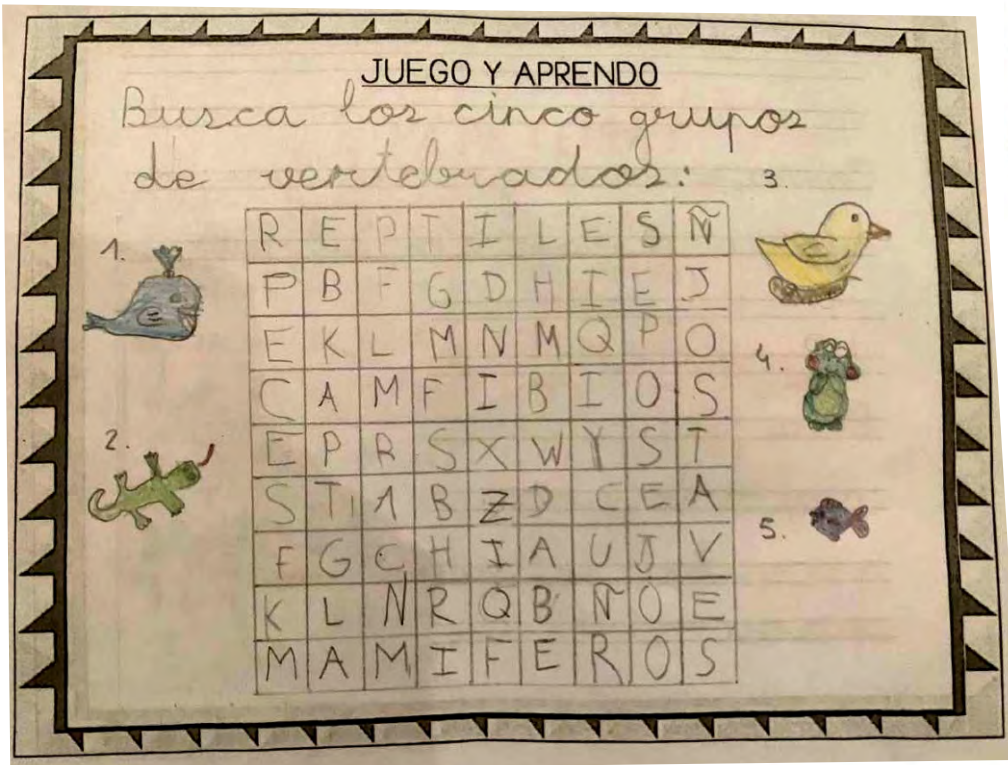 JUEGO Y APRENDO
Busca los cinco grupos
de vertebrados:
1.
2.
3.
4.
5.
R E P T I L E S Ñ
P B F G D H I E J
E K L M N M Q P O
C A M F I B I O S
E P R S X W Y S T
S T A B Z D C E A
F G C H I A U J V
K L N R Q B Ñ O E
M A M I F E R O S